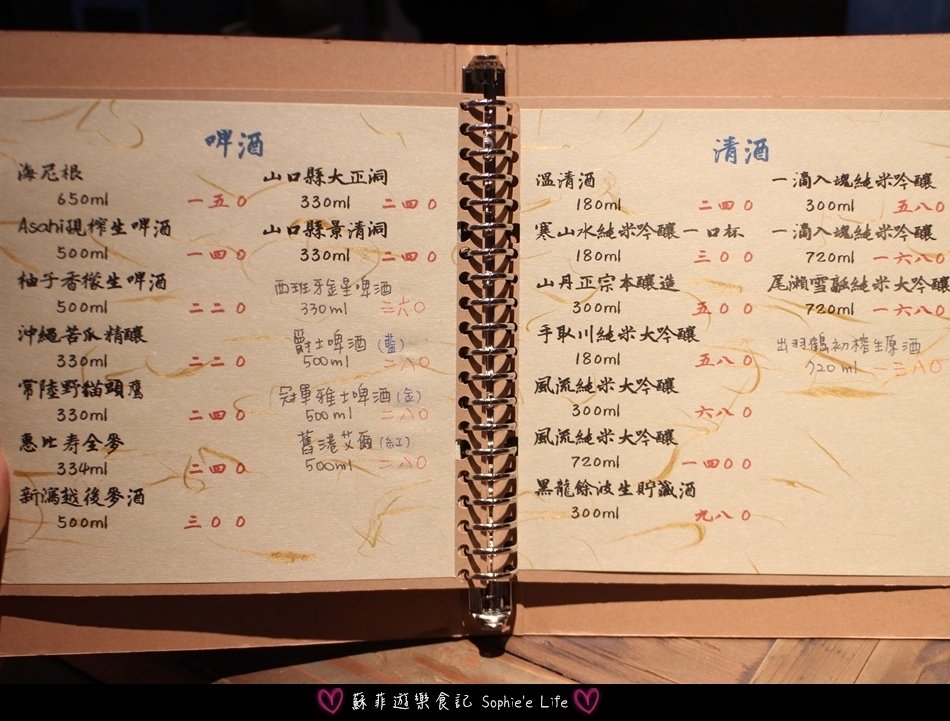 啤酒
海尼根
650ml 一五0
Asahi現榨生啤酒
500ml 一四0
柚子香檬生啤酒
500ml 二二0
沖繩苦瓜精釀
330ml 二二0
常陸野貓頭鷹
330ml 二四0
惠比寿全麥
334ml 二四0
新瀉越後麥酒
500ml 三00
山口縣大正洞
330ml 二四0
山口縣景清洞
330ml 二四0
西班牙金星啤酒
330ml 二六0
爵士啤酒(藍)
500ml 二八0
冠軍雅士啤酒(金)
500ml 二八0
舊港艾爾(紅)
500ml 二八0
清酒
溫清酒
180ml 二四0
寒山水純米吟釀一口杯
180ml 三00
山丹正宗本釀造
300ml 五00
手取川純米大吟釀
180ml 五八0
風流純米大吟釀
300ml 六八0
風流純米大吟釀
720ml 一四00
黑龍餘波生貯藏酒
300ml 九八0
一滴入塊純米吟釀
300ml 五八0
一滴入塊純米吟釀
720ml 一六八0
尾瀨雪融純米大吟釀
720ml 一六八0
出羽鶴初榨生原酒
720ml 一三八0
蘇菲遊樂食記 Sophie'e Life